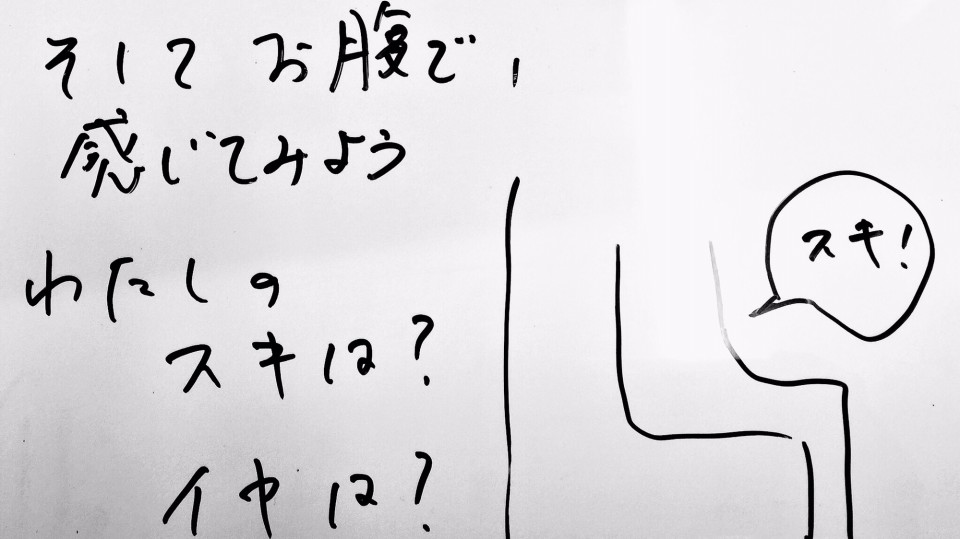 そして お腹で、
感じてみよう
わたしの
スキは?
イヤは?
スキ!